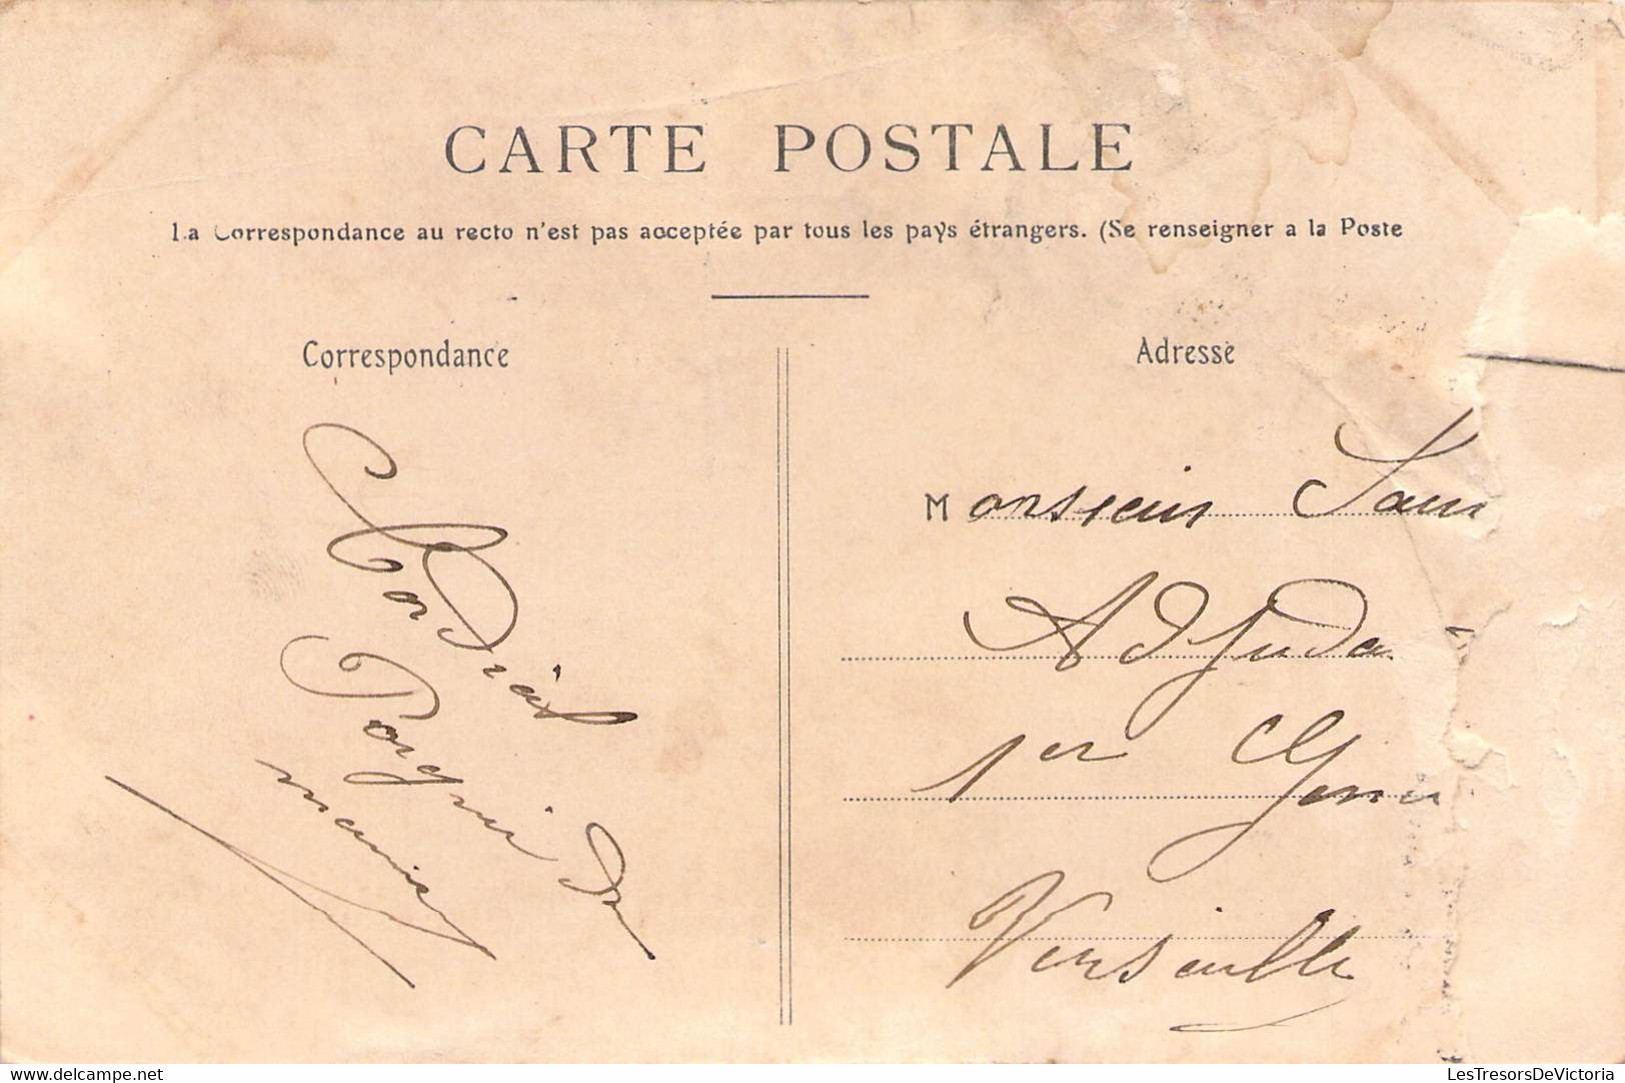 CARTE POSTALE
La Correspondance au recto n'est pas acceptée par tous les pays étrangers. (Se renseigner a la Poste
Correspondance
Adresse
Cordial
de
Monsieur
Adjuda
1er
Versaille
delcampe.net
LesTresorsDeVictoria